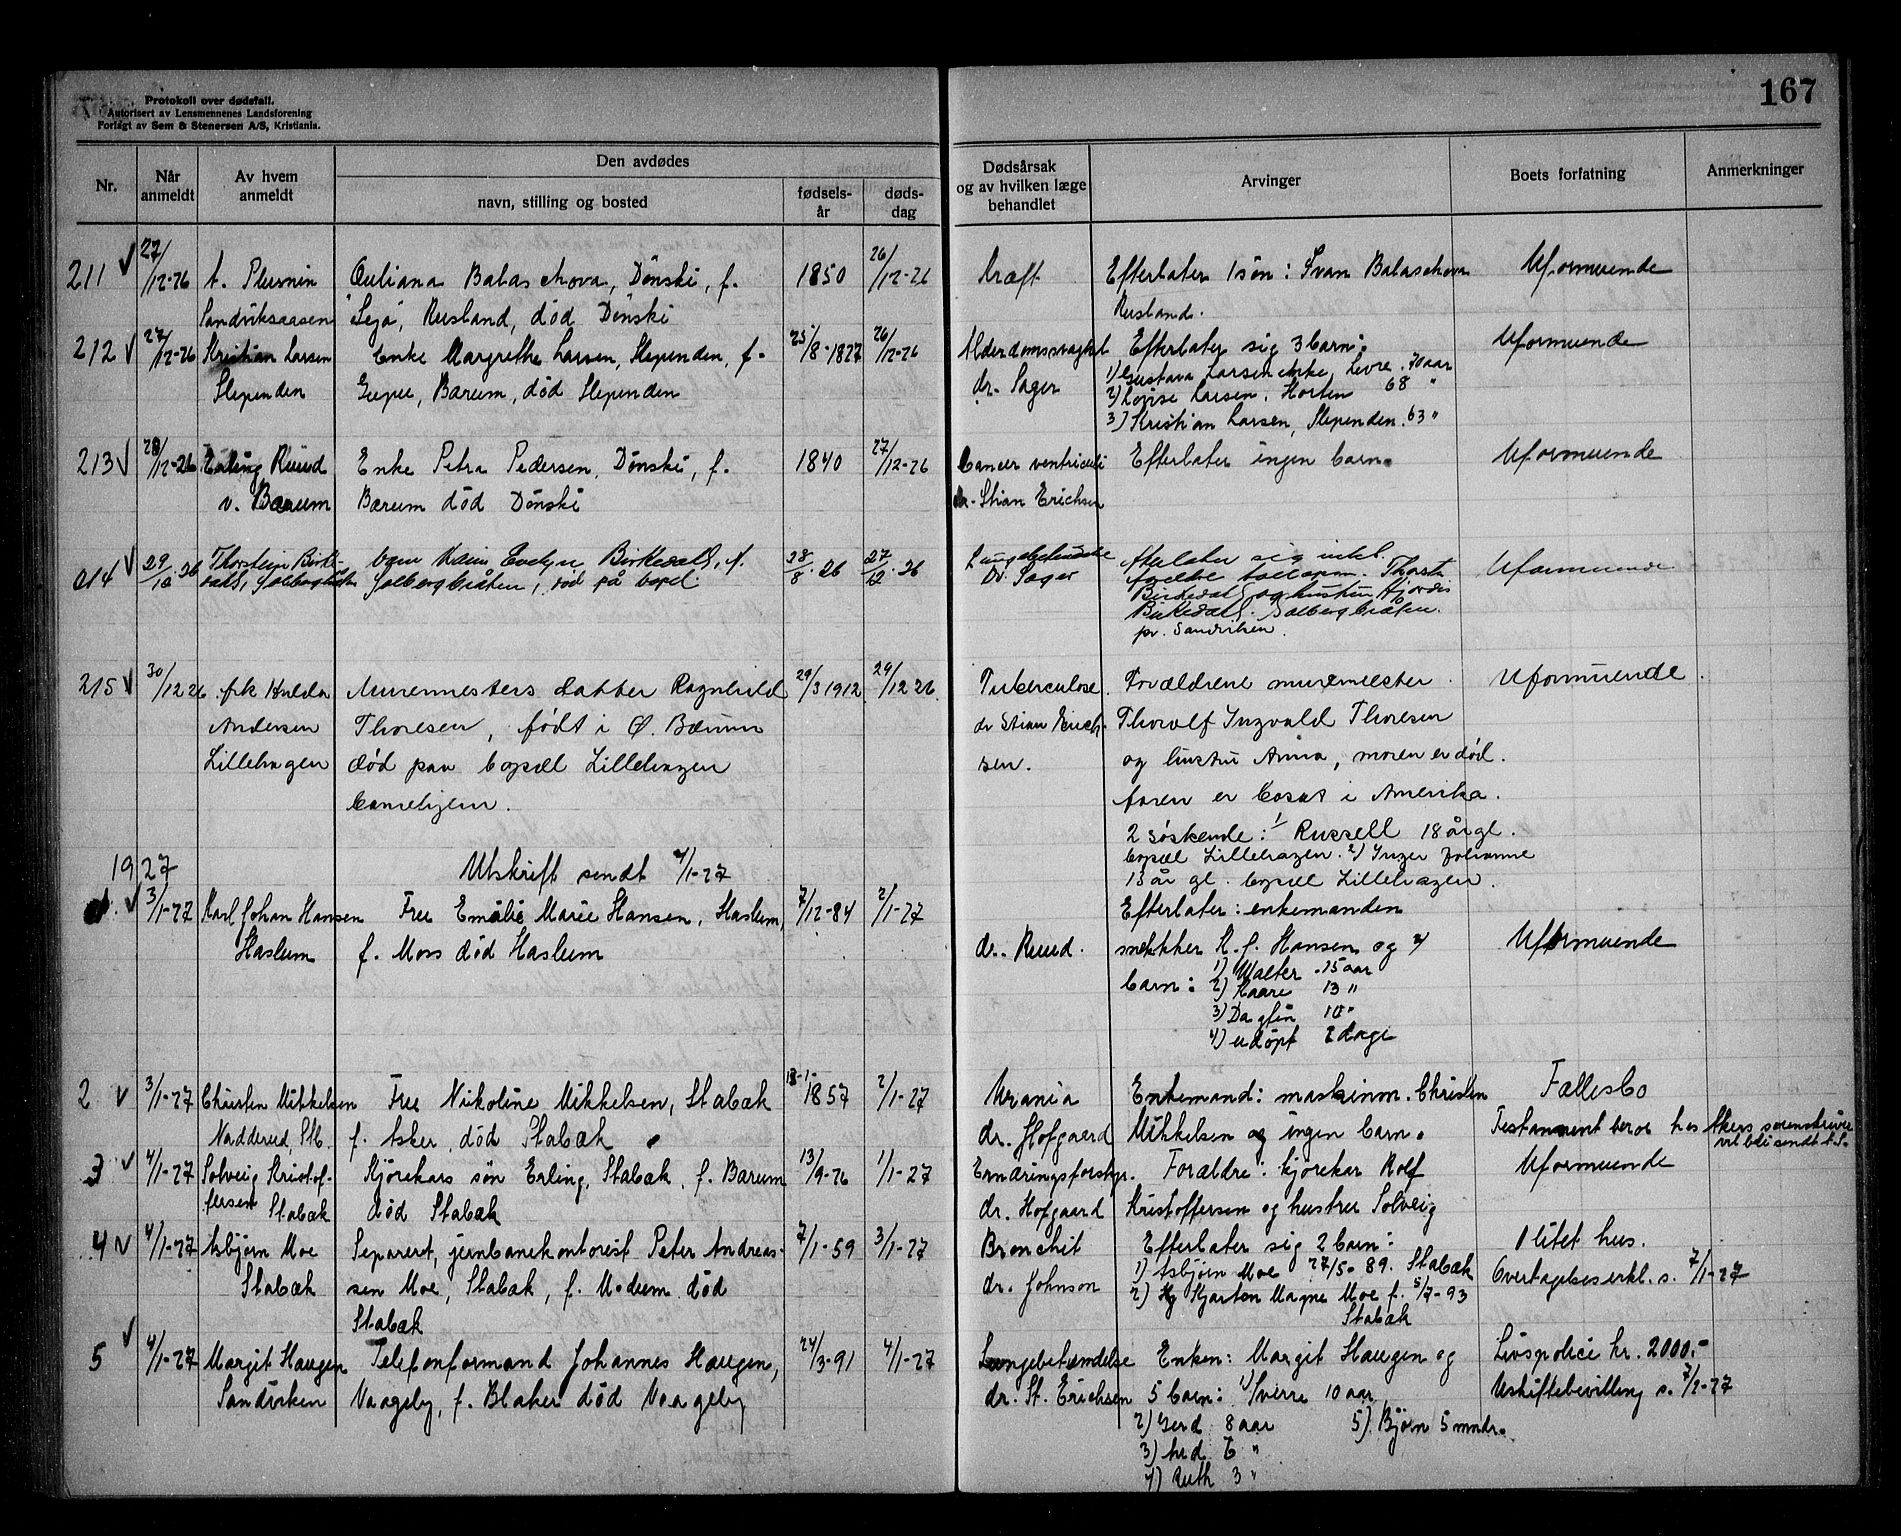 167
Protokoll over dødsfall.
Autorisert av Lensmennenes Landsforening
Forlagt av Sem & Stenersen A/S, Kristiania.
Nr.
Når anmeldt
Av hvem anmeldt
Den avdødes
navn, stilling og bosted
fødsels-år
døds-dag
Dødsårsak og av hvilken læge behandlet
Arvinger
Boets forfatning
Anmerkninger
211 27/12-26 A. Plusnin Juliana Balaschova, Dønski, f. 1850 26/12-26 Kræft Efterlater 1 søn: Ivan Balaschova Uformuende
Sandviksaasen Rusland, død Dønski Rusland.
212 27/12-26 Kristian Larsen Enke Margrethe Larsen, Slependen, f. 25/8-1827 26/12-26 Alderdomssvaghet Efterlater sig 3 barn: Uformuende
Slependen Bærum, død Slependen dr. Sager 1) Gustava Larsen enke, Levre. 70 aar
2) Lovise Larsen, Horten 68 "
3) Kristian Larsen, Slependen. 63 "
213 28/12-26 Erling Ruud Enke Petra Pedersen, Dønski, f. 1840 27/12-26 Cancer ventriculi Efterlater ingen barn. Uformuende
v. Bærum Bærum død Dønski dr. Stian Erichsen
214 29/12 26 Thorstein Birke- barn Evelyn Birkedahl, f. 28/8 26 27/12 26 Lungebetendelse Efterlater sig intet. Uformuende
dahl, Solbergbråten Solbergbråten, død på bopel. Dr. Sager forældre Thorst.
Birkedahl og hustru Hjørdis
Birkedahl. Solbergbråten
pr. Sandviken.
215 30/12 26 frk Hulda Murermesters datter Ragnhild 29/3 1912 29/12 26 Tuberculose. Forældrene murmester Uformuende.
Andersen Thoresen, født i Ø. Bærum dr Stian Erich- Thorolf Ingvald Thoresen
Lillehagen død paa bopæl Lillehagen sen. og hustru Anna, moren er død.
barnehjem. faren er bosat i Amerika.
2 søskende: 1) Russell 18 år gl.
bopæl Lillehagen. 2) Inger Johanne
13 år gl. bopæl Lillehagen.
1927 Utskrift sendt 4/1-27
1. 3/1-27 Karl Johan Hansen Fru Emilie Marie Hansen, Haslum, 7/12-84 2/1-27 Efterlater: enkemanden
Haslum f. Moss død Haslum dr. Ruud. snekker K. J. Hansen og 4 Uformuende
barn: 1) Walter 15 aar
2) Kaare 13 "
3) Dagfin 10 "
4) udøpt 2 dage
2 3/1-27 Christen Mikkelsen Fru Nikoline Mikkelsen, Stabæk 13-1-1857 2/1-27 Urania Enkemand: maskinm. Christen Fællesbo
Nadderud, Stb. f. Asker, død Stabæk dr. Hofgaard Mikkelsen og ingen barn. Testament beror hos Akers sorenskriver
vil bli sendt t. S.
3 4/1-27 Solveig Kristof- Kjørekars søn Erling, Stabæk, f. Bærum 13/9-26 1/1-27 Ernæringsforstyr. Forældre: kjørekar Rolf Uformuende
fersen Stabæk død Stabæk dr. Hofgaard Kristoffersen og hustru Solveig
4 4/1-27 Asbjørn Moe Separert, jernbanekontorist Peter Andreas- 7/1-59 3/1-27 Bronchit Efterlater sig 2 barn: 1 litet hus.
Stabæk sen Moe, Stabæk, f. Modum død dr. Johnson 1) Asbjørn Moe 27/5-89. Stabæk Overtagelseserkl. s. 7/1-27
Stabæk 2) Kjartan Magne Moe f. 5/7-93
Stabæk
5 4/1-27 Margit Haugen Telefonformand Johannes Haugen, 24/3-91 4/1-27 Lungebetændelse Enken: Margit Haugen og Livspolice kr. 2000.-
Sandviken Vaageby, f. Blaker død Vaageby dr. St. Erichsen 5 barn: 1) Sverre 10 aar Uskiftebevilling s. 7/1-27
2) Gerd 8 aar 5) Bjørn 5 mndr.
3) 6 "
4) Ruth 3 "